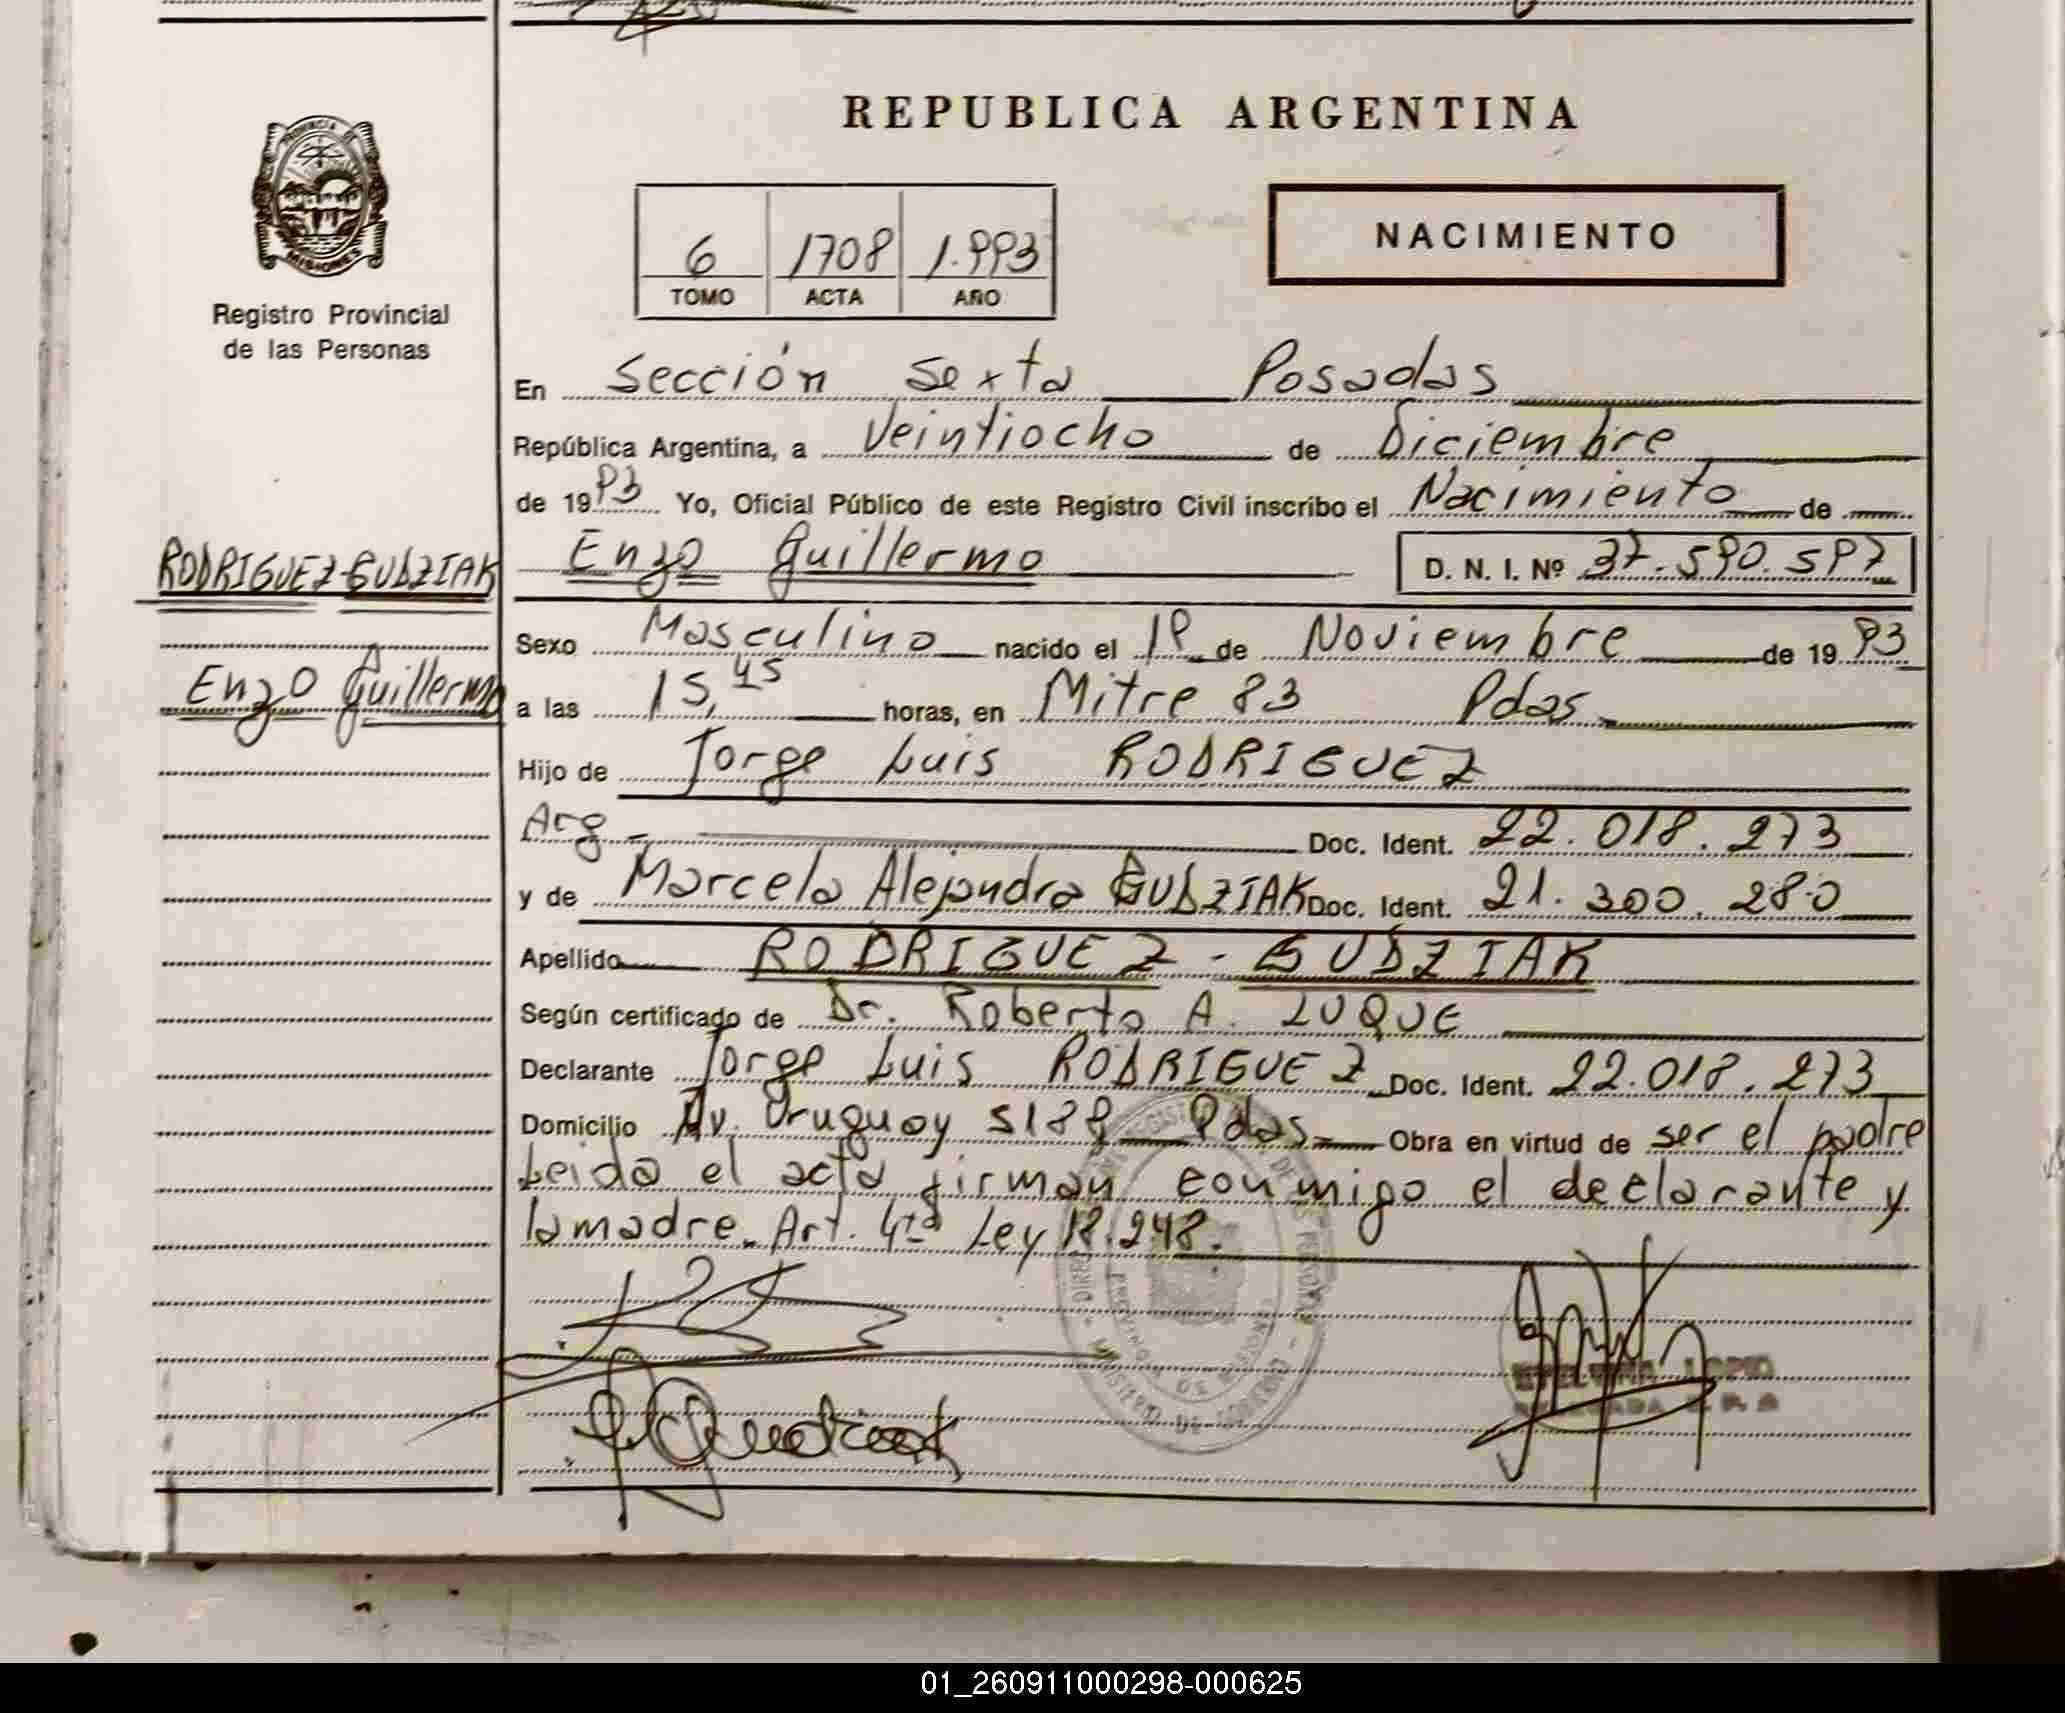 REPUBLICA ARGENTINA
PROVINCIA DE
MISIONES
Registro Provincial
de las Personas
6 1708 1.993
TOMO ACTA AÑO
NACIMIENTO
En Sección Sexta Posadas
República Argentina, a Veintiocho de Diciembre
de 1993 Yo, Oficial Público de este Registro Civil inscribo el Nacimiento de
RODRIGUEZ-GUDZIAK
Enzo Guillermo
Enzo Guillermo D. N. I. Nº 37.590.597
Sexo Masculino nacido el 19 de Noviembre de 1993
a las 15,45 horas, en Mitre 83 Pdas
Hijo de Jorge Luis RODRIGUEZ
Arg Doc. Ident. 22.018.273
y de Marcela Alejandra GUDZIAK Doc. Ident. 21.300.280
Apellido RODRIGUEZ - GUDZIAK
Según certificado de Dr. Roberto A. LUQUE
Declarante Jorge Luis RODRIGUEZ Doc. Ident. 22.018.273
Domicilio Av. Uruguay 5189 Pdas Obra en virtud de ser el padre
Leida el acta firman conmigo el declarante y
la madre. Art. 4ta Ley 18.248.
01_260911000298-000625